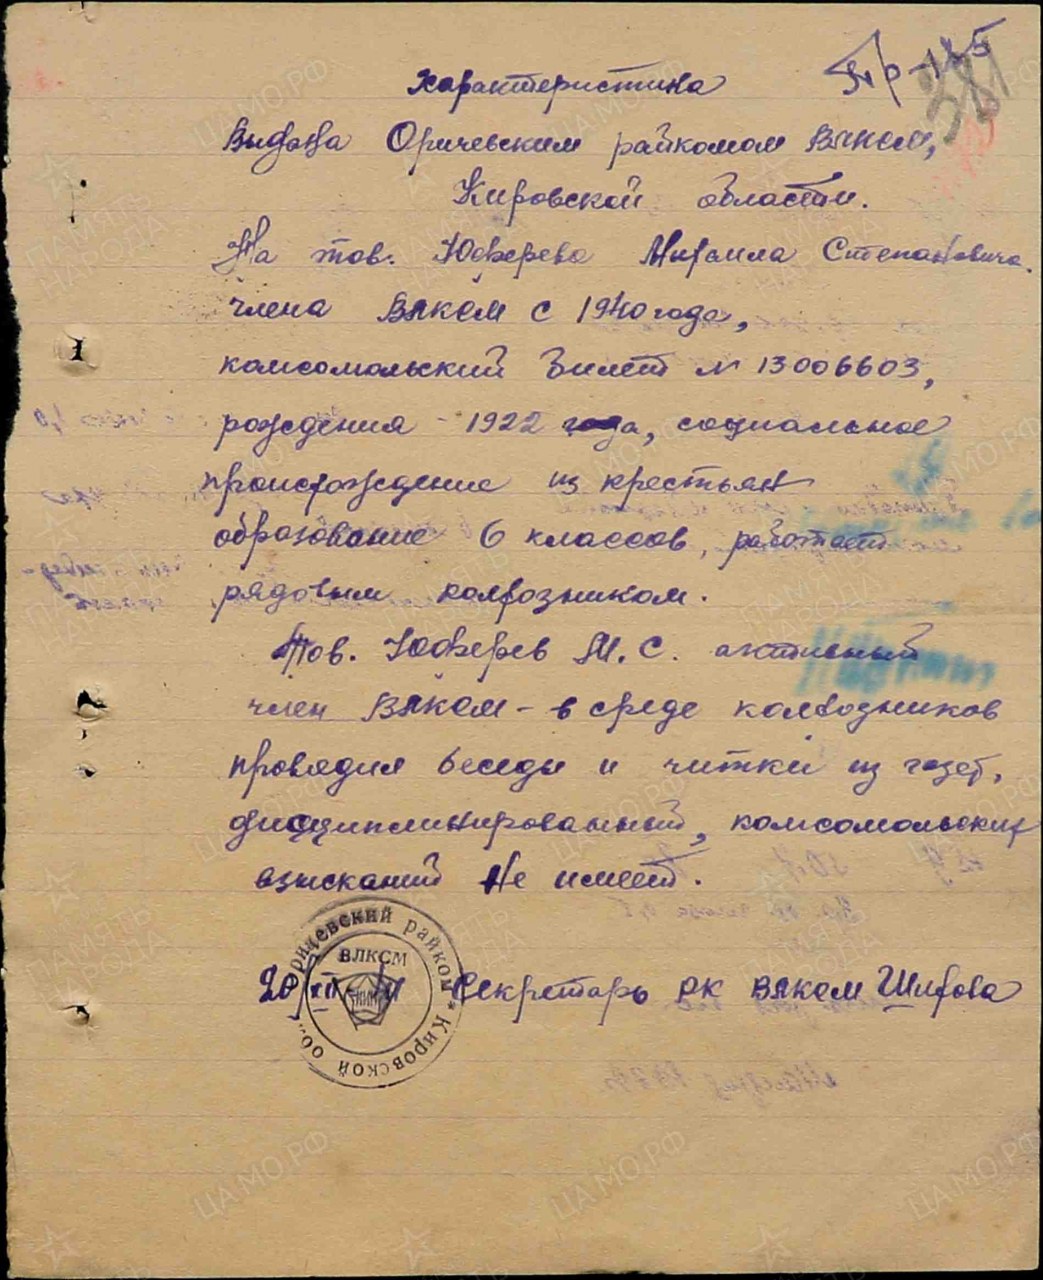 Характеристика
Выдана Оричевским райкомом ВЛКСМ,
Кировской области.
На тов. Юферева Михаила Степановича.
члена ВЛКСМ с 1940 года,
комсомольский билет № 13006603,
рождения - 1922 года, социальное
происхождение из крестьян
образование 6 классов, работает
рядовым колхозником.
Тов. Юферев М.С. активный
член ВЛКСМ - в среде колхозников
проводил беседы и читки из газет,
дисциплинированный, комсомольских
взысканий не имеет.
Оричевский райком ВЛКСМ * Кировской об.
Секретарь РК ВЛКСМ
381
ЦАМО.РФ
ПАМЯТЬ НАРОДА